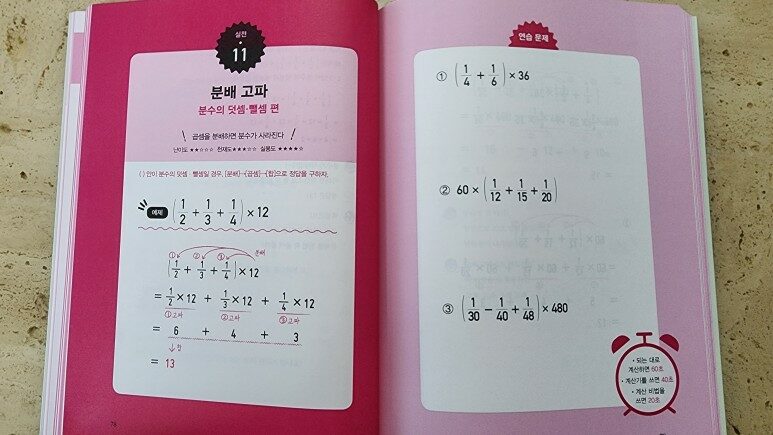 실전
11
분배 고파
분수의 덧셈·뺄셈 편
곱셈을 분배하면 분수가 사라진다
난이도 ★★☆☆☆ 천재도 ★★★☆☆ 실용도 ★★★★☆
( ) 안이 분수의 덧셈·뺄셈일 경우, [분배]→[곱셈]→[합]으로 정답을 구하자.
예제 (1/2 + 1/3 + 1/4) × 12
① ② ③ 분배
(1/2 + 1/3 + 1/4) × 12
= 1/2 × 12 + 1/3 × 12 + 1/4 × 12
①고파 ②고파 ③고파
= 6 + 4 + 3
↓합
= 13
78
연습 문제
① (1/4 + 1/6) × 36
② 60 × (1/12 + 1/15 + 1/20)
③ (1/30 - 1/40 + 1/48) × 480
• 되는 대로
계산하면 60초
• 계산기를 쓰면 40초
• 계산 비법을
쓰면 20초